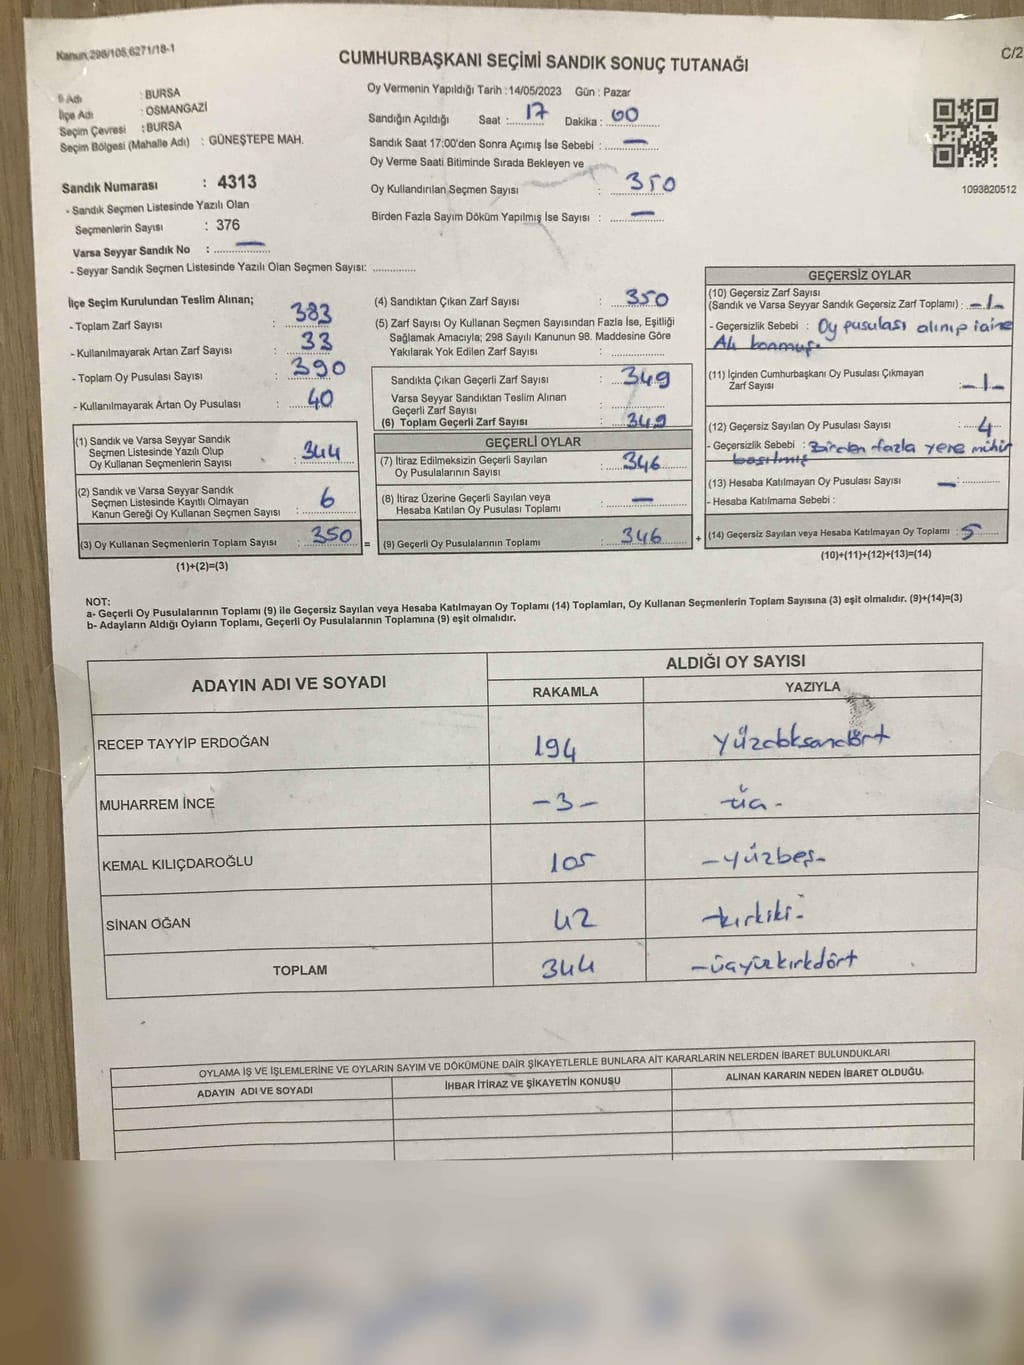 Kanun;298/105;6271/18-1
C/2
CUMHURBAŞKANI SEÇİMİ SANDIK SONUÇ TUTANAĞI
İl Adı : BURSA
İlçe Adı : OSMANGAZİ
Seçim Çevresi : BURSA
Seçim Bölgesi (Mahalle Adı) : GÜNEŞTEPE MAH.
Sandık Numarası : 4313
- Sandık Seçmen Listesinde Yazılı Olan
Seçmenlerin Sayısı : 376
Varsa Seyyar Sandık No : —
- Seyyar Sandık Seçmen Listesinde Yazılı Olan Seçmen Sayısı: ..............
Oy Vermenin Yapıldığı Tarih :14/05/2023 Gün : Pazar
Sandığın Açıldığı Saat : 17 Dakika : 00
Sandık Saat 17:00'den Sonra Açımış İse Sebebi : —
Oy Verme Saati Bitiminde Sırada Bekleyen ve
Oy Kullandırılan Seçmen Sayısı : 350
Birden Fazla Sayım Döküm Yapılmış İse Sayısı : —
1093820512
İlçe Seçim Kurulundan Teslim Alınan;
- Toplam Zarf Sayısı : 383
- Kullanılmayarak Artan Zarf Sayısı : 33
- Toplam Oy Pusulası Sayısı : 390
- Kullanılmayarak Artan Oy Pusulası : 40
(1) Sandık ve Varsa Seyyar Sandık
Seçmen Listesinde Yazılı Olup
Oy Kullanan Seçmenlerin Sayısı : 344
(2) Sandık ve Varsa Seyyar Sandık
Seçmen Listesinde Kayıtlı Olmayan
Kanun Gereği Oy Kullanan Seçmen Sayısı : 6
(3) Oy Kullanan Seçmenlerin Toplam Sayısı : 350 =
(1)+(2)=(3)
(4) Sandıktan Çıkan Zarf Sayısı : 350
(5) Zarf Sayısı Oy Kullanan Seçmen Sayısından Fazla İse, Eşitliği
Sağlamak Amacıyla; 298 Sayılı Kanunun 98. Maddesine Göre
Yakılarak Yok Edilen Zarf Sayısı : ..............
Sandıkta Çıkan Geçerli Zarf Sayısı : 349
Varsa Seyyar Sandıktan Teslim Alınan
Geçerli Zarf Sayısı : ..............
(6) Toplam Geçerli Zarf Sayısı : 349
GEÇERLİ OYLAR
(7) İtiraz Edilmeksizin Geçerli Sayılan
Oy Pusulalarının Sayısı : 346
(8) İtiraz Üzerine Geçerli Sayılan veya
Hesaba Katılan Oy Pusulası Toplamı : —
(9) Geçerli Oy Pusulalarının Toplamı : 346 +
GEÇERSİZ OYLAR
(10) Geçersiz Zarf Sayısı
(Sandık ve Varsa Seyyar Sandık Geçersiz Zarf Toplamı) : -1-
- Geçersizlik Sebebi : Oy pusulası alınıp
(11) İçinden Cumhurbaşkanı Oy Pusulası Çıkmayan
Zarf Sayısı : -1-
(12) Geçersiz Sayılan Oy Pusulası Sayısı : 4
- Geçersizlik Sebebi : Birden fazla yere mühür
basılmış
(13) Hesaba Katılmayan Oy Pusulası Sayısı —
- Hesaba Katılmama Sebebi :
(14) Geçersiz Sayılan veya Hesaba Katılmayan Oy Toplamı : 5
(10)+(11)+(12)+(13)=(14)
NOT:
a- Geçerli Oy Pusulalarının Toplamı (9) ile Geçersiz Sayılan veya Hesaba Katılmayan Oy Toplamı (14) Toplamları, Oy Kullanan Seçmenlerin Toplam Sayısına (3) eşit olmalıdır. (9)+(14)=(3)
b- Adayların Aldığı Oyların Toplamı, Geçerli Oy Pusulalarının Toplamına (9) eşit olmalıdır.
ADAYIN ADI VE SOYADI
ALDIĞI OY SAYISI
RAKAMLA YAZIYLA
RECEP TAYYİP ERDOĞAN 194 yüzdoksandört
MUHARREM İNCE -3- üç-
KEMAL KILIÇDAROĞLU 105 -yüzbeş-
SİNAN OĞAN 42 -kırkiki-
TOPLAM 344 -üçyüzkırkdört
OYLAMA İŞ VE İŞLEMLERİNE VE OYLARIN SAYIM VE DÖKÜMÜNE DAİR ŞİKAYETLERLE BUNLARA AİT KARARLARIN NELERDEN İBARET BULUNDUKLARI
ADAYIN ADI VE SOYADI İHBAR İTİRAZ VE ŞİKAYETİN KONUSU ALINAN KARARIN NEDEN İBARET OLDUĞU